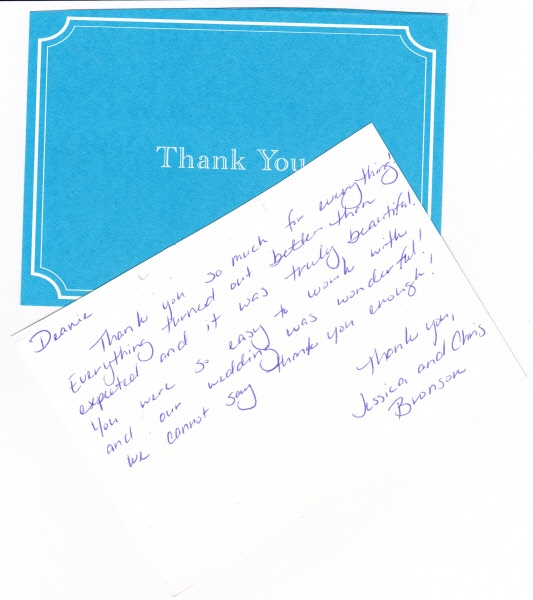 Thank You
Deanie
Thank you so much for everything!
Everything turned out better then
expected and it was truly beautiful.
You were so easy to work with
and our wedding was wonderful!
We cannot say thank you enough!
Thank you,
Jessica and Chris
Bronson